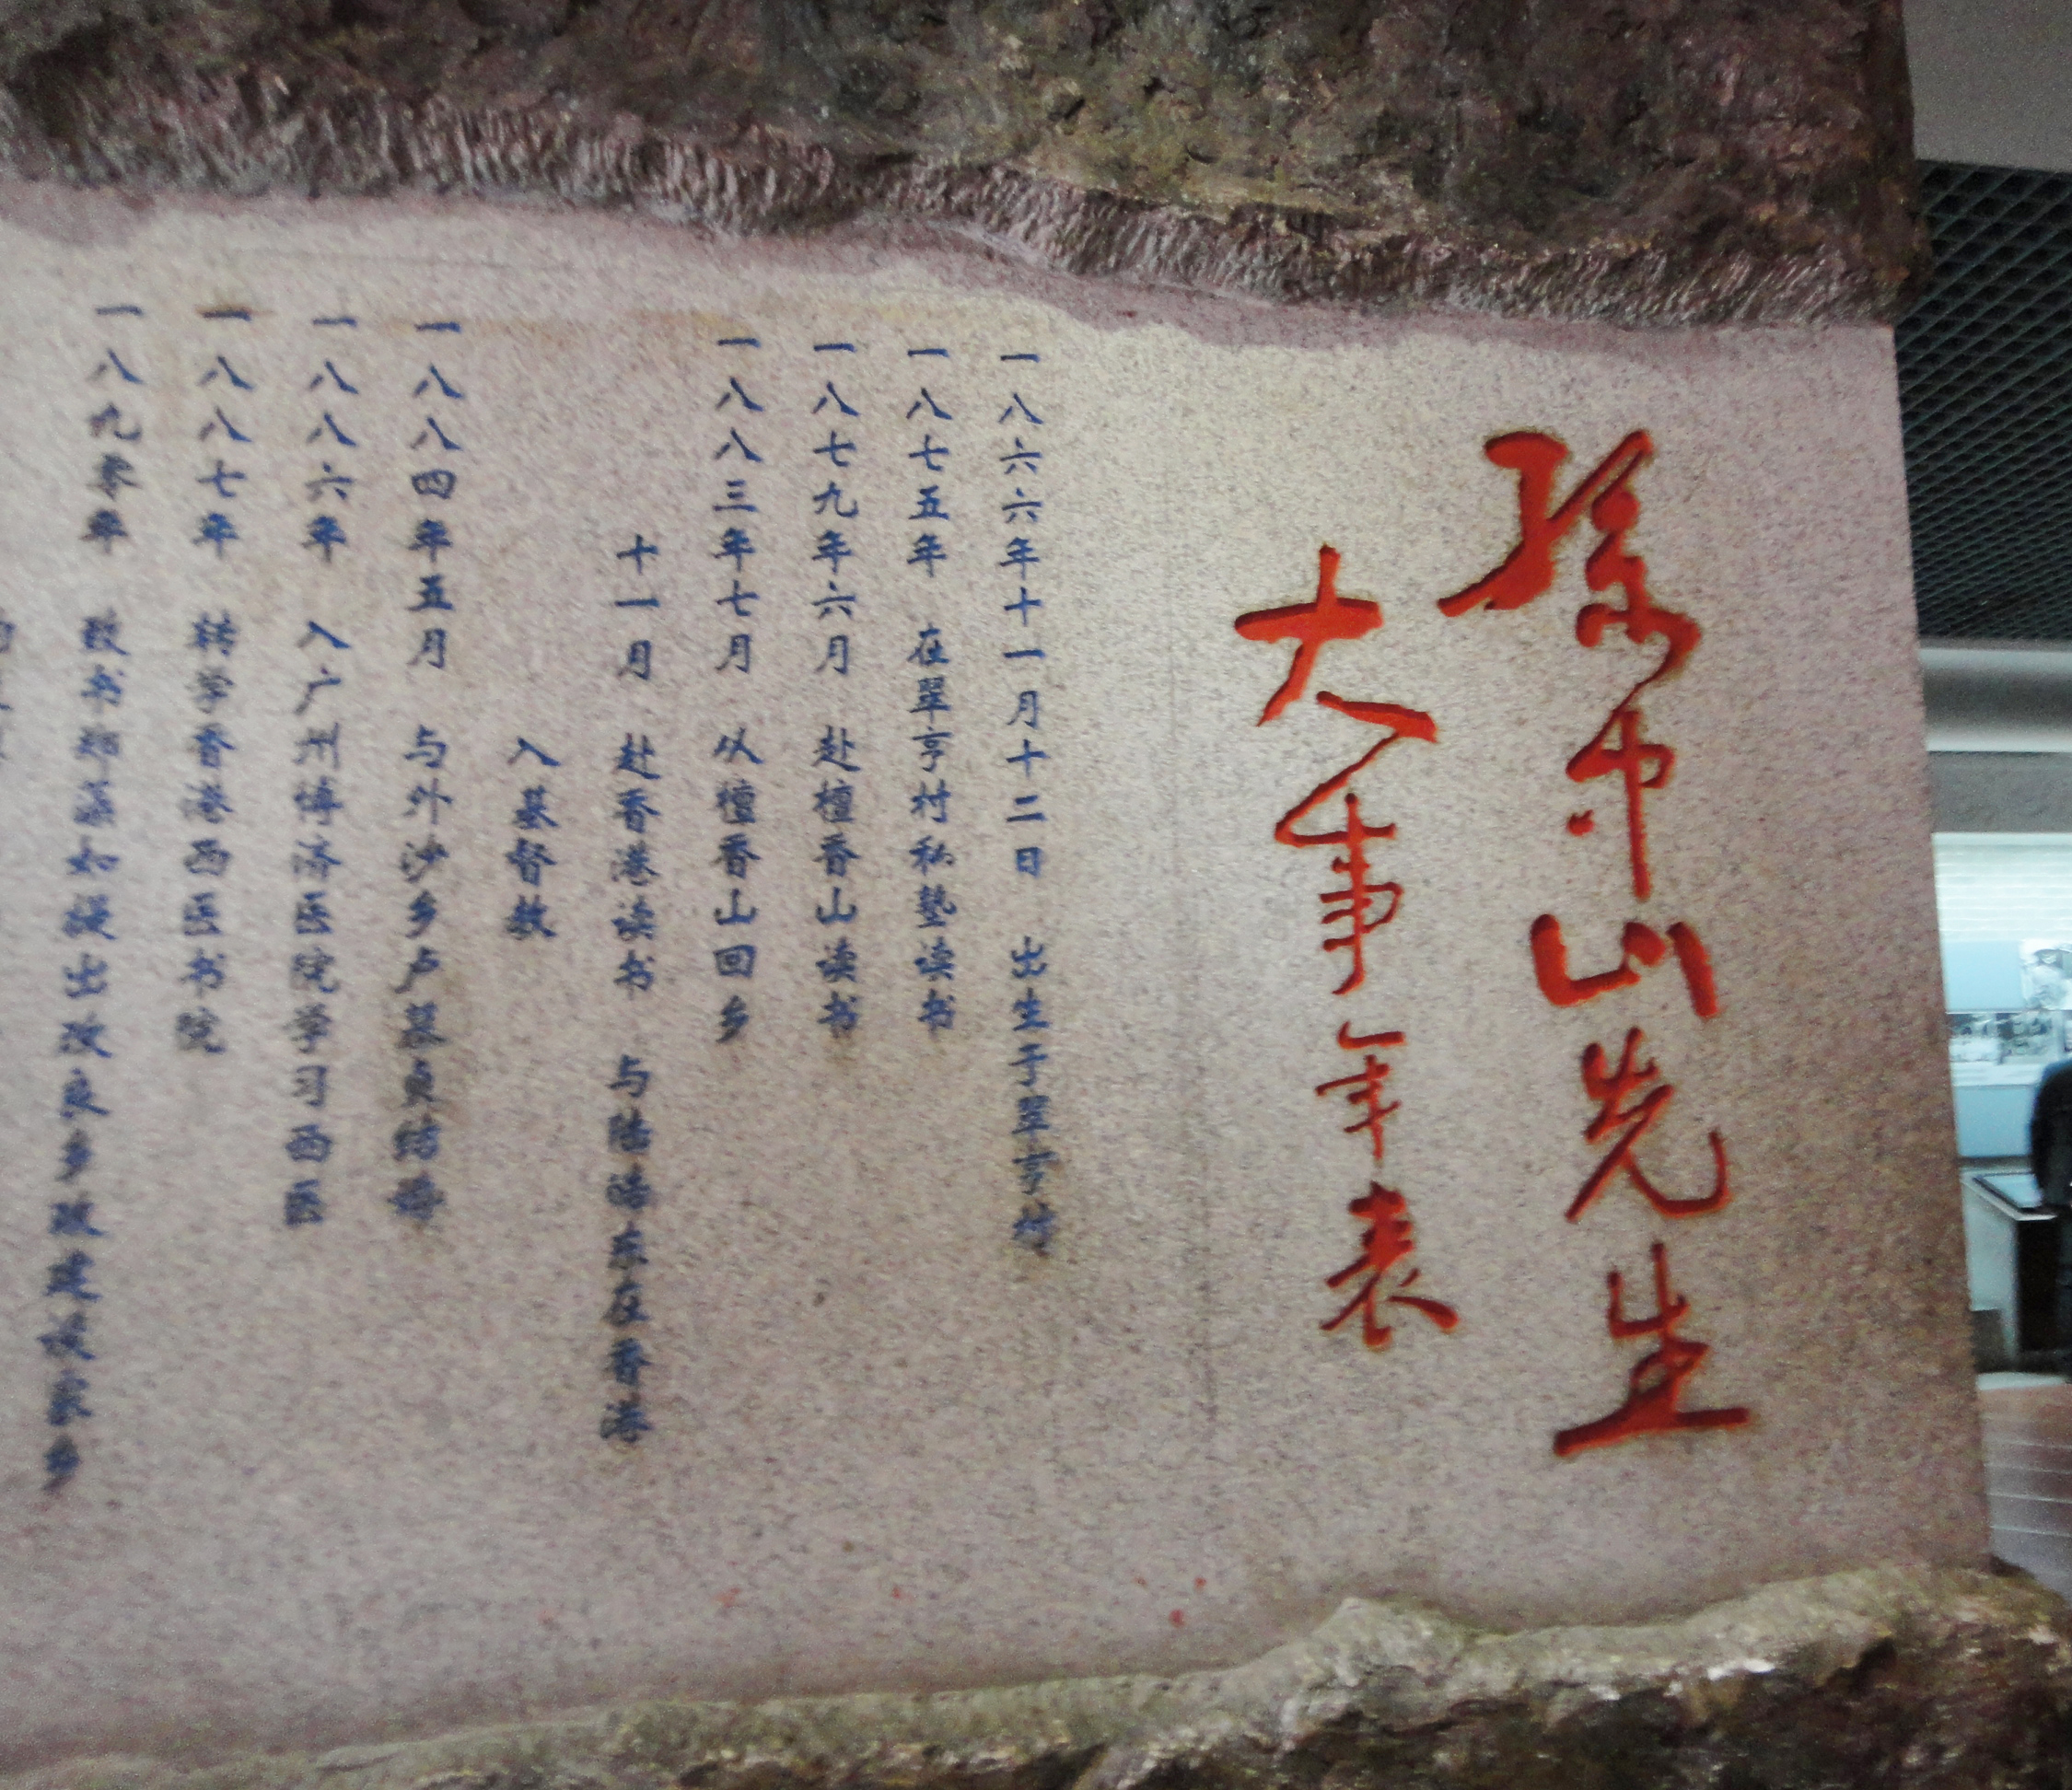 孫中山先生
大事年表
一八六六年十一月十二日 出生于翠亨村
一八七五年 在翠亨村私塾读书
一八七九年六月 赴檀香山读书
一八八三年七月 从檀香山回乡
十一月 赴香港读书 与陆皓东在香港
入基督教
一八八四年五月 与外沙乡卢慕贞结婚
一八八六年 入广州博济医院学习西医
一八八七年 转学香港西医书院
一八九零年 致书郑藻如提出改良乡政建设家乡